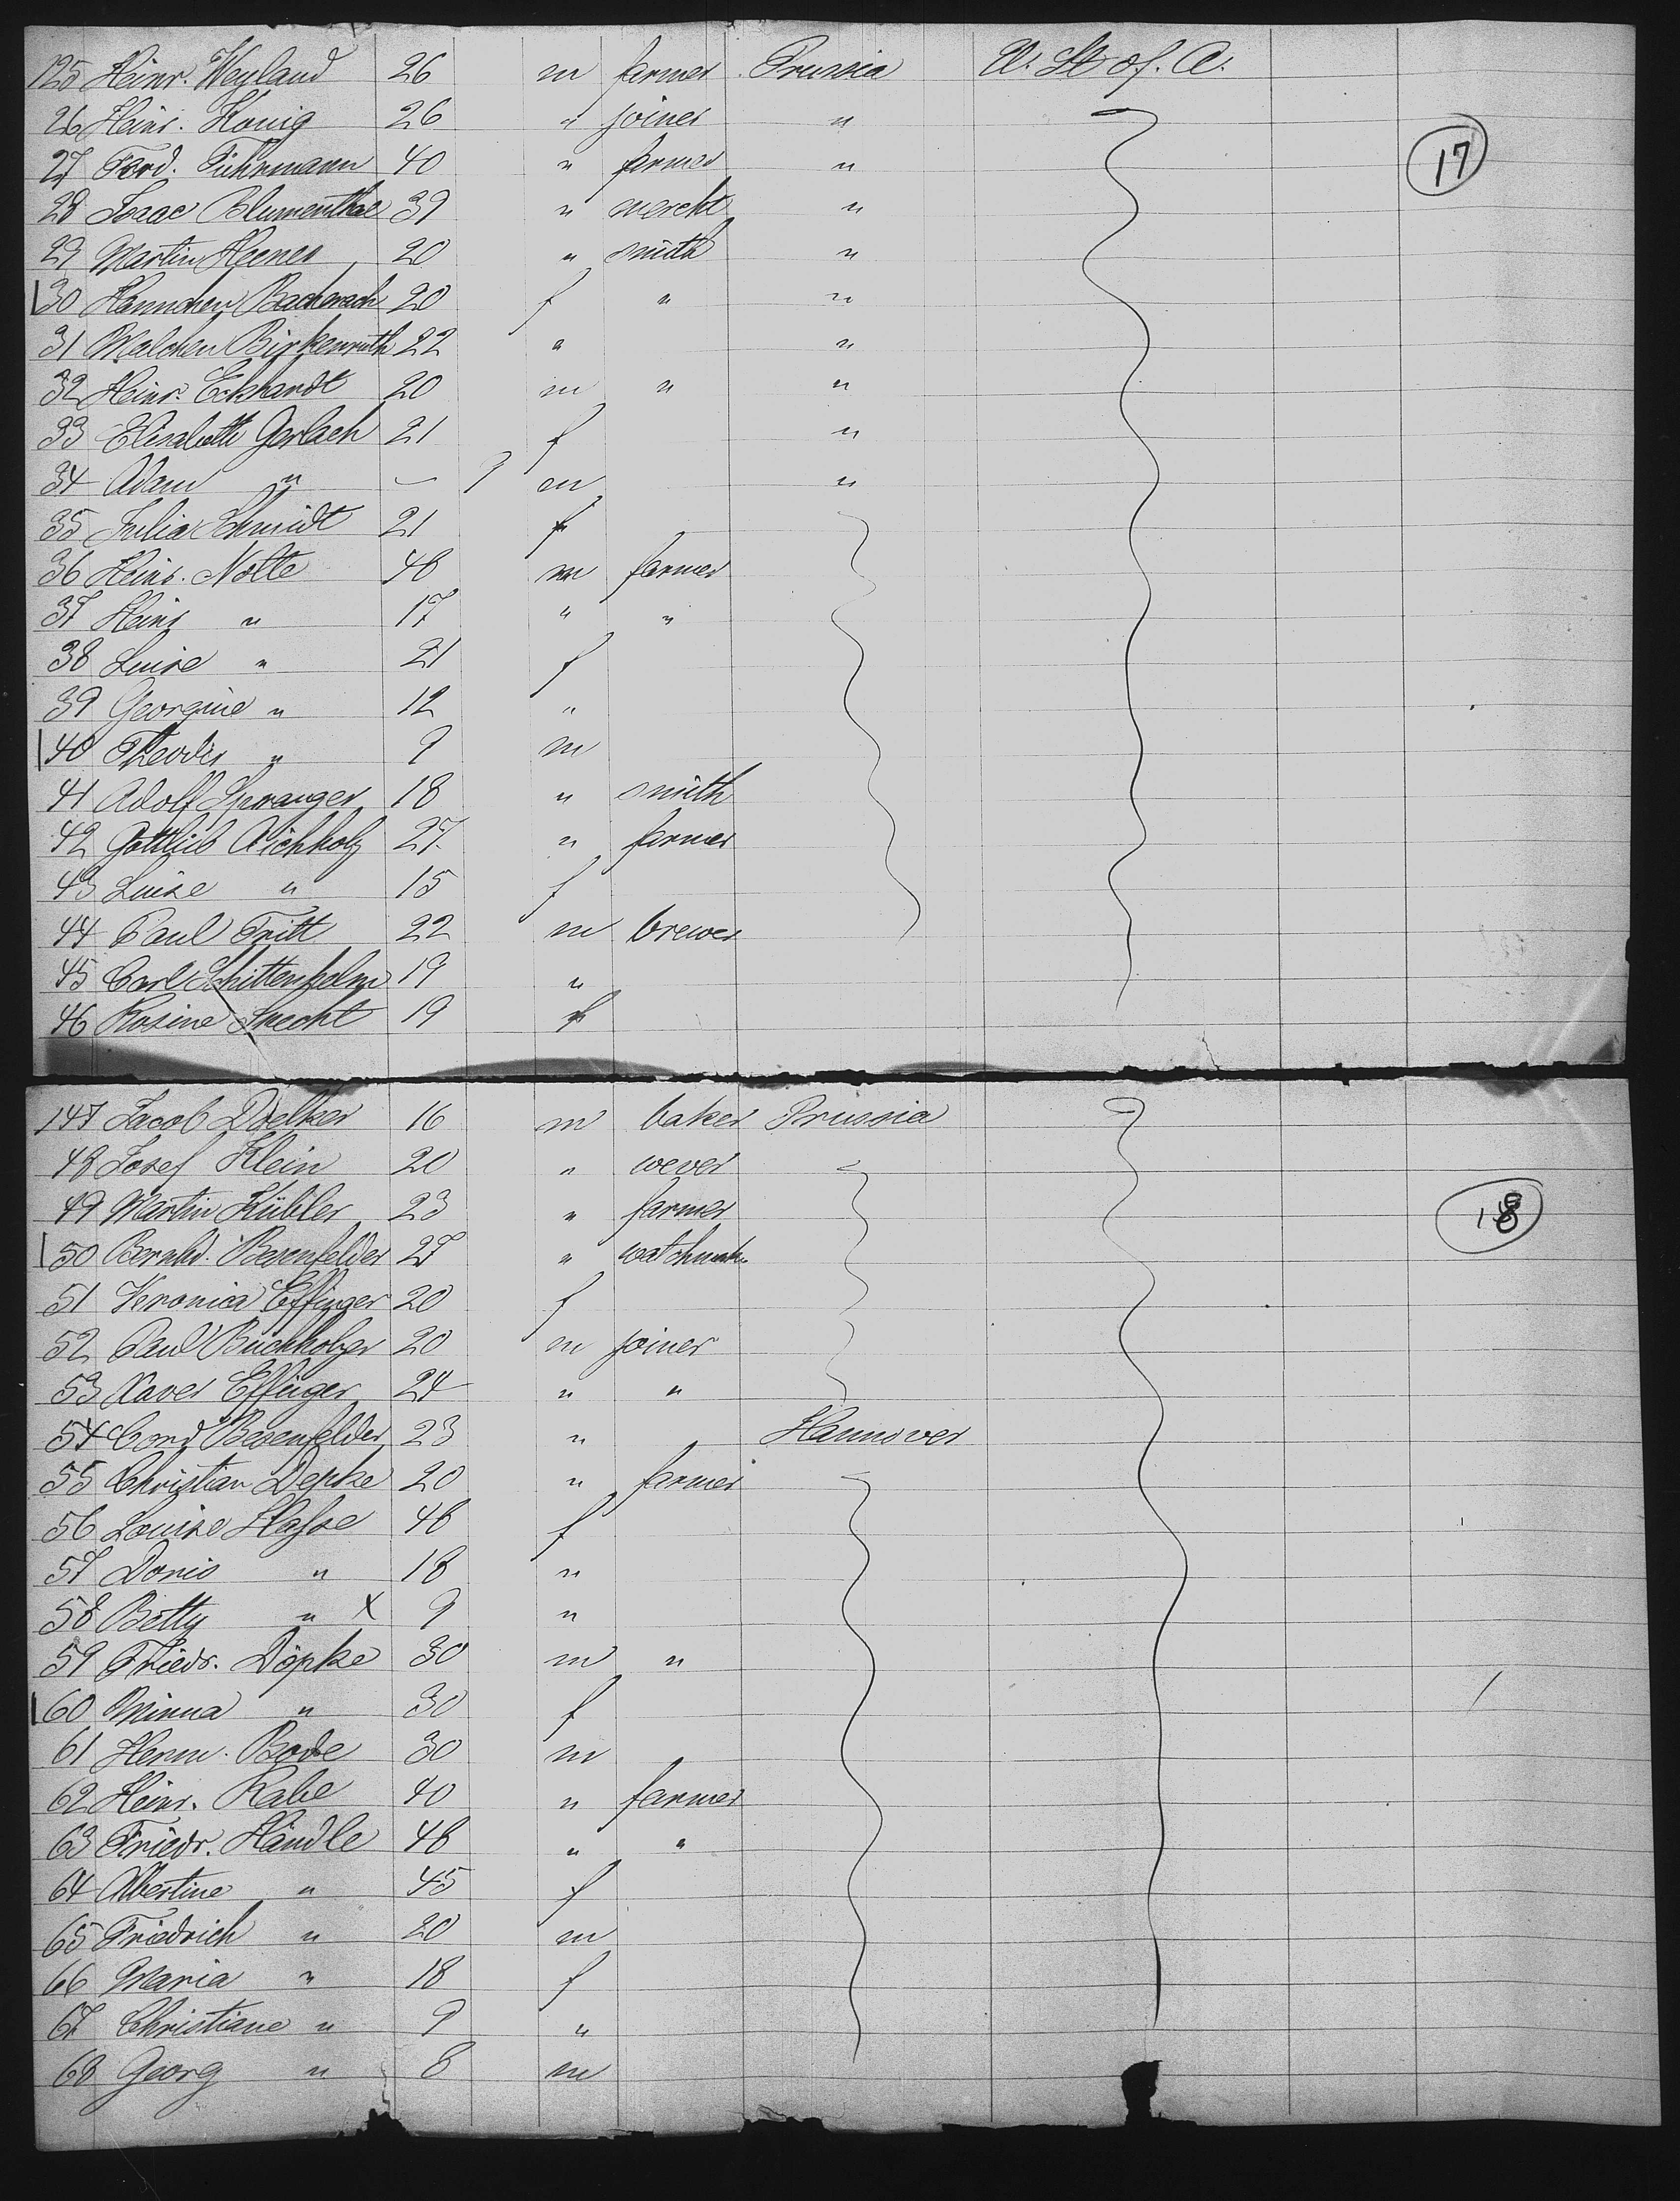 125 Heinr. Weyland 26 m farmer Prussia U. St of. A.
26 Heinr. König 26 " joiner "
27 Ferd. Führmann 40 " farmer " 17
28 Isaac Blumenthal 39 " mercht "
29 Martin Heenes 20 " smith "
30 Hannchen Bacherach 20 f " "
31 Malchen Birkenruth 22 " "
32 Heinr. Eckhardt 20 m " "
33 Elisabeth Gerlach 21 f "
34 Adam " – 9 m "
35 Julia Schmidt 21 f
36 Heinr. Nolte 48 m farmer
37 Heinr " 17 " "
38 Luise " 21 f
39 Georgine " 12 "
40 Theodor " 9 m
41 Adolf Spranger 18 " smith
42 Gottlieb Aichholz 27 " farmer
43 Luise " 15 f
44 Paul Tritt 22 m brewer
45 Carl Schittenhelm 19 "
46 Rosine Specht 19 f
147 Jacob Doelker 16 m baker Prussia
48 Josef Klein 20 " wever
49 Martin Kübler 23 " farmer 18
50 Bernhd. Besenfelder 27 " watchmak
51 Veronica Effinger 20 f
52 Paul Buchholzer 20 m joiner
53 Xaver Effinger 24 " "
54 Conrd Besenfelder 23 " Hannover
55 Christian Depke 20 " farmer
56 Louise Hasse 48 f
57 Doris " 18 "
58 Betty " x 9 "
59 Friedr. Döpke 30 m "
60 Minna " 30 f
61 Herm. Bode 30 m
62 Heinr. Rabe 40 " farmer
63 Friedr. Händle 48 " "
64 Albertine " 45 f
65 Friedrich " 20 m
66 Maria " 18 f
67 Christiane " 9 "
68 Georg " 8 m